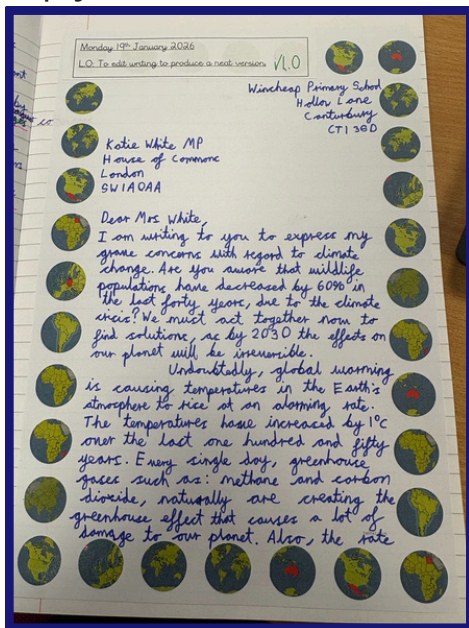 Monday 19th January 2026
L.O: To edit writing to produce a neat version. V1.0
Wincheap Primary School
Hollow Lane
Canterbury
CT1 3SD
Katie White MP
House of Commons
London
SW1A 0AA
Dear Mrs White,
I am writing to you to express my
grave concerns with regard to climate
change. Are you aware that wildlife
populations have decreased by 60% in
the last forty years, due to the climate
crisis? We must act together now to
find solutions, as by 2030 the effects on
our planet will be irreversible.
Undoubtedly, global warming
is causing temperatures in the Earth's
atmosphere to rise at an alarming rate.
The temperatures have increased by 1°C
over the last one hundred and fifty
years. Every single day, greenhouse
gases such as: methane and carbon
dioxide, naturally are creating the
greenhouse effect that causes a lot of
damage to our planet. Also, the rate